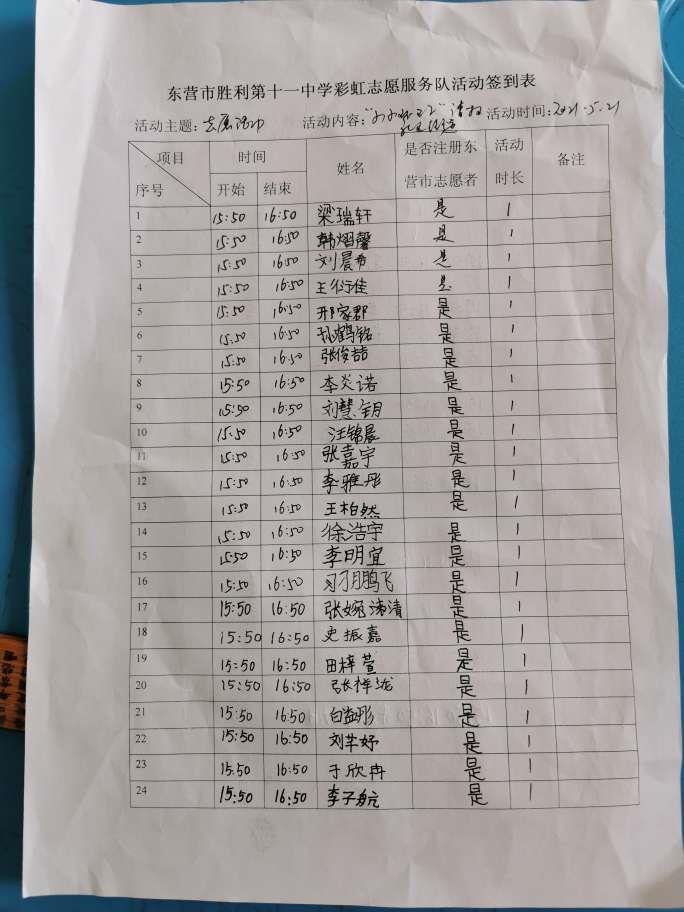 东营市胜利第十一中学彩虹志愿服务队活动签到表
活动主题:志愿活动 活动内容: 活动时间:2021.5.21
项目 序号 时间 开始 结束 姓名 是否注册东营市志愿者 活动时长 备注
1 15:50 16:50 梁瑞轩 是 1
2 15:50 16:50 韩熠馨 是 1
3 15:50 16:50 刘晨希 是 1
4 15:50 16:50 王衍佳 是 1
5 15:50 16:50 邢家郡 是 1
6 15:50 16:50 孙鹤铭 是 1
7 15:50 16:50 张俊喆 是 1
8 15:50 16:50 李炎诺 是 1
9 15:50 16:50 刘慧钥 是 1
10 15:50 16:50 汪锦晨 是 1
11 15:50 16:50 张嘉宇 是 1
12 15:50 16:50 李雅彤 是 1
13 15:50 16:50 王柏然 是 1
14 15:50 16:50 徐浩宇 是 1
15 15:50 16:50 李明宜 是 1
16 15:50 16:50 鹏飞 是 1
17 15:50 16:50 张婉清 是 1
18 15:50 16:50 史振嘉 是 1
19 15:50 16:50 田梓萱 是 1
20 15:50 16:50 张梓泷 是 1
21 15:50 16:50 白益彤 是 1
22 15:50 16:50 刘芊妤 是 1
23 15:50 16:50 于欣冉 是 1
24 15:50 16:50 李子航 是 1